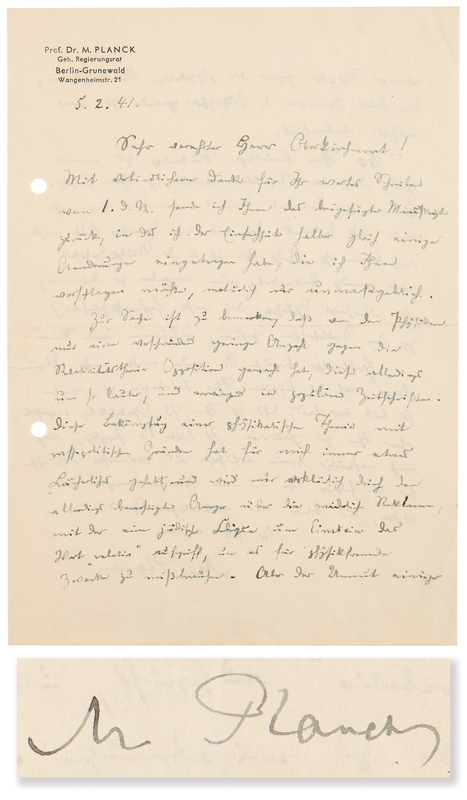 Prof. Dr. M. PLANCK
Geh. Regierungsrat
Berlin-Grunewald
Wangenheimstr. 21
5. 2. 41.
Sehr verehrter Herr Oberkirchenrat!
Mit verbindlichem Dank für Ihr wertes Schreiben
vom 1. d. M. sende ich Ihnen das beigefügte Manuskript
zurück, in das ich der Einfachheit halber gleich einige
Änderungen eingetragen habe, die ich Ihnen
vorschlagen möchte, natürlich nur unmassgeblich.
Zur Sache ist zu bemerken, daß von den Physikern
nur eine verschwindend geringe Anzahl gegen die
Relativitätstheorie Opposition gemacht hat, diese allerdings
um so lauter, und vorwiegend in populären Zeitschriften.
Diese Bekämpfung einer physikalischen Theorie mit
rassepolitischen Gründen hat für mich immer etwas
Lächerliches gehabt, und wird nur erklärlich durch den
allerdings berechtigten Ärger über die widerliche Reklame,
mit der eine jüdische Clique um Einstein das
Wort "relativ" aufgriff, um es für physikfremde
Zwecke zu mißbrauchen. Aber der Unmut einiger
M Planck